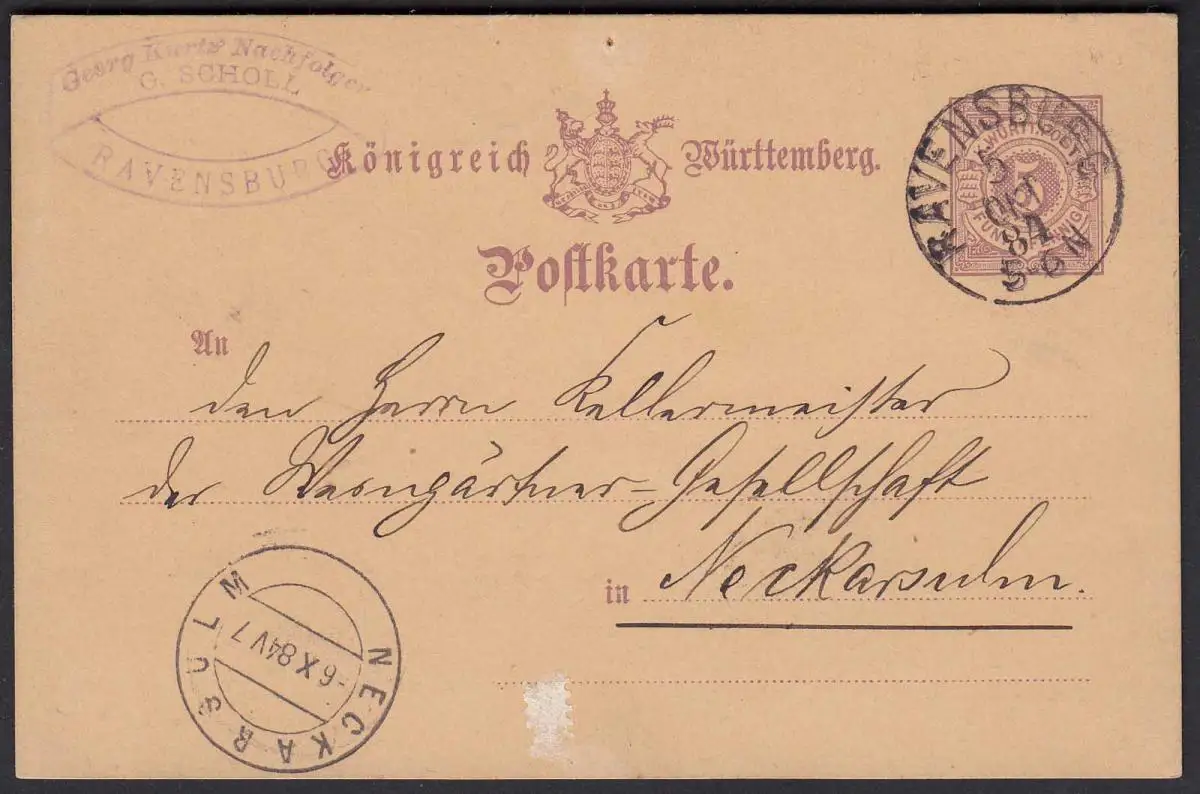 Georg Kurtz Nachfolger
G. SCHOLL
RAVENSBURG
Königreich Württemberg.
Postkarte.
K. WÜRTT. POST
5
FÜNF PFENNIG
RAVENSBURG
5
OKT
84
5-6 N
An
den Herrn Kellermeister
der Weingärtner-Gesellschaft
in Neckarsulm.
NECKARSULM
-6 X 84 V 7